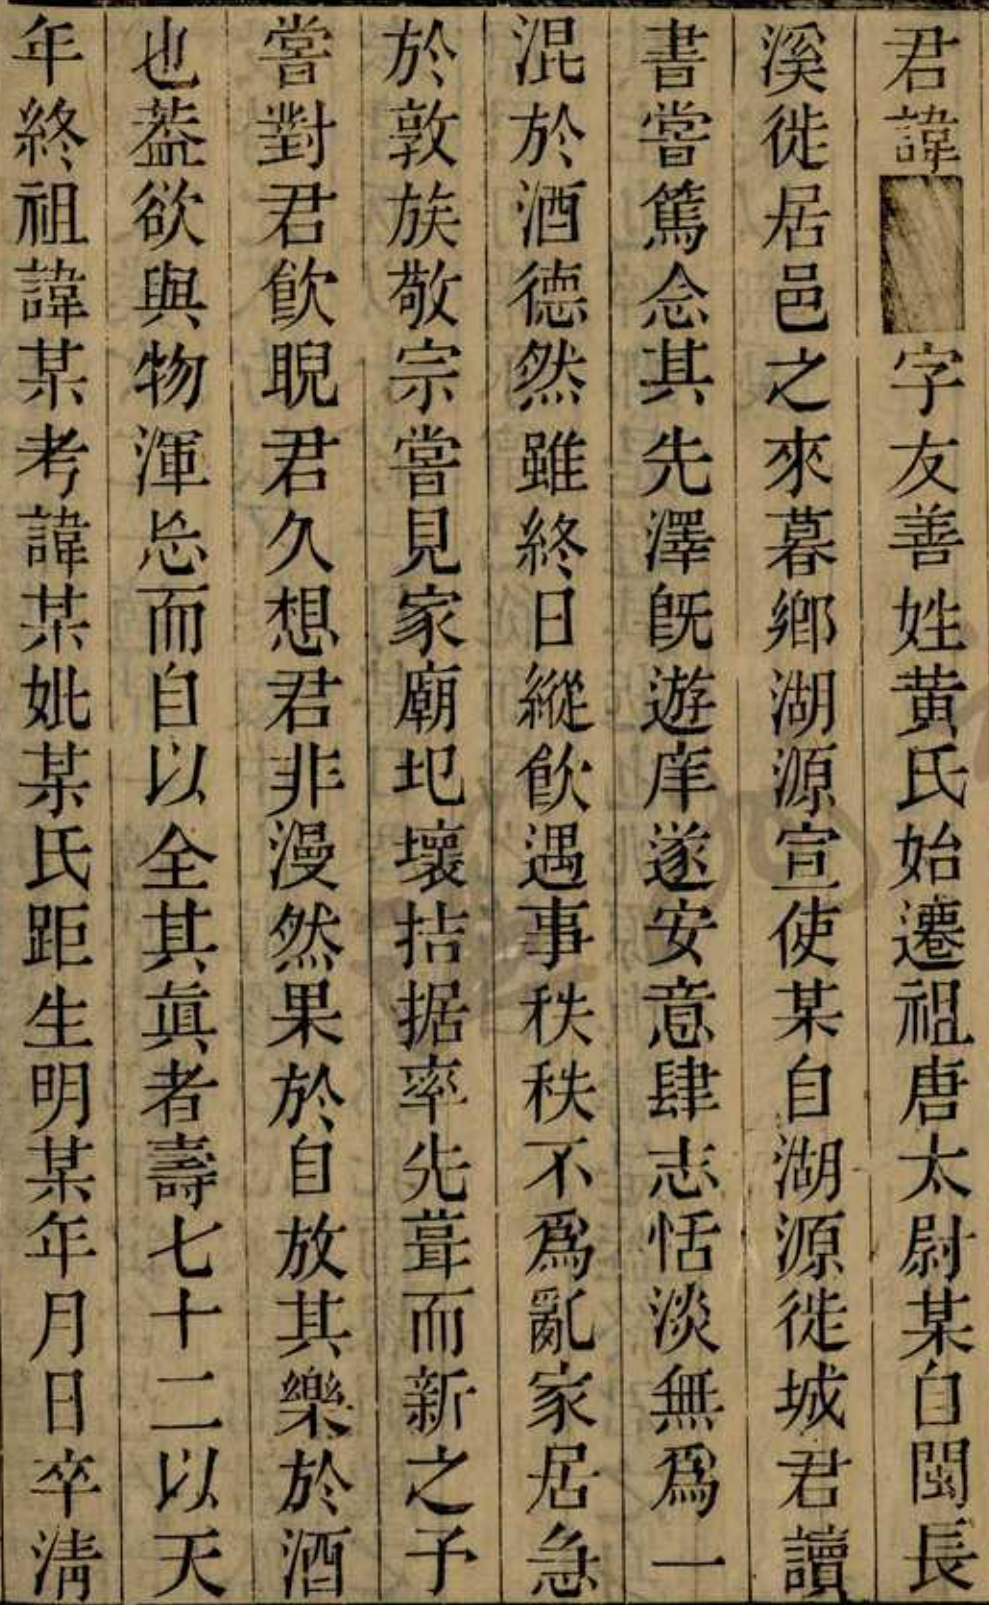 君諱字友善姓黄氏始遷祖唐太尉某自閩長
溪徙居邑之來暮鄉湖源宣使某自湖源徙城君讀
書嘗篤念其先澤旣遊庠遂安意肆志恬淡無爲一
混於酒德然雖終日縱飲遇事秩秩不爲亂家居急
於敦族敬宗嘗見家廟圮壞拮据率先葺而新之予
嘗對君飲睨君久想君非漫然果於自放其樂於酒
也葢欲與物渾忘而自以全其眞者壽七十二以天
年終祖諱某考諱某妣某氏距生明某年月日卒淸